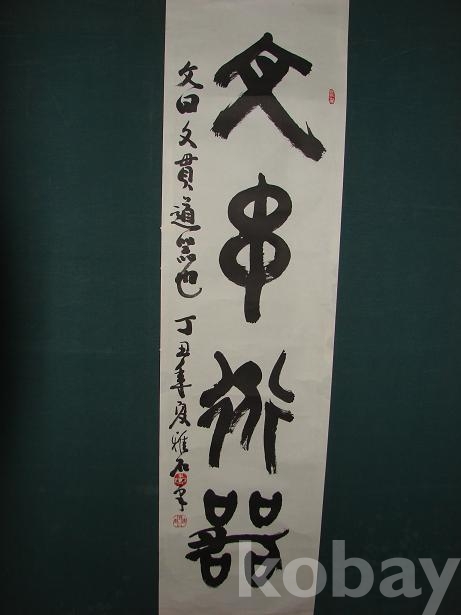 文串道器
文曰文貫道器也 丁丑年夏雅石
kobay